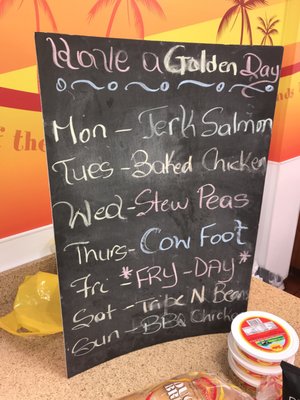 Have a Golden Day
Mon - Jerk Salmon
Tues - Baked Chicken
Wed - Stew Peas
Thurs - Cow Foot
Fri - *FRY-DAY*
Sat - Tripe N Beans
Sun - BBQ Chicken
of the